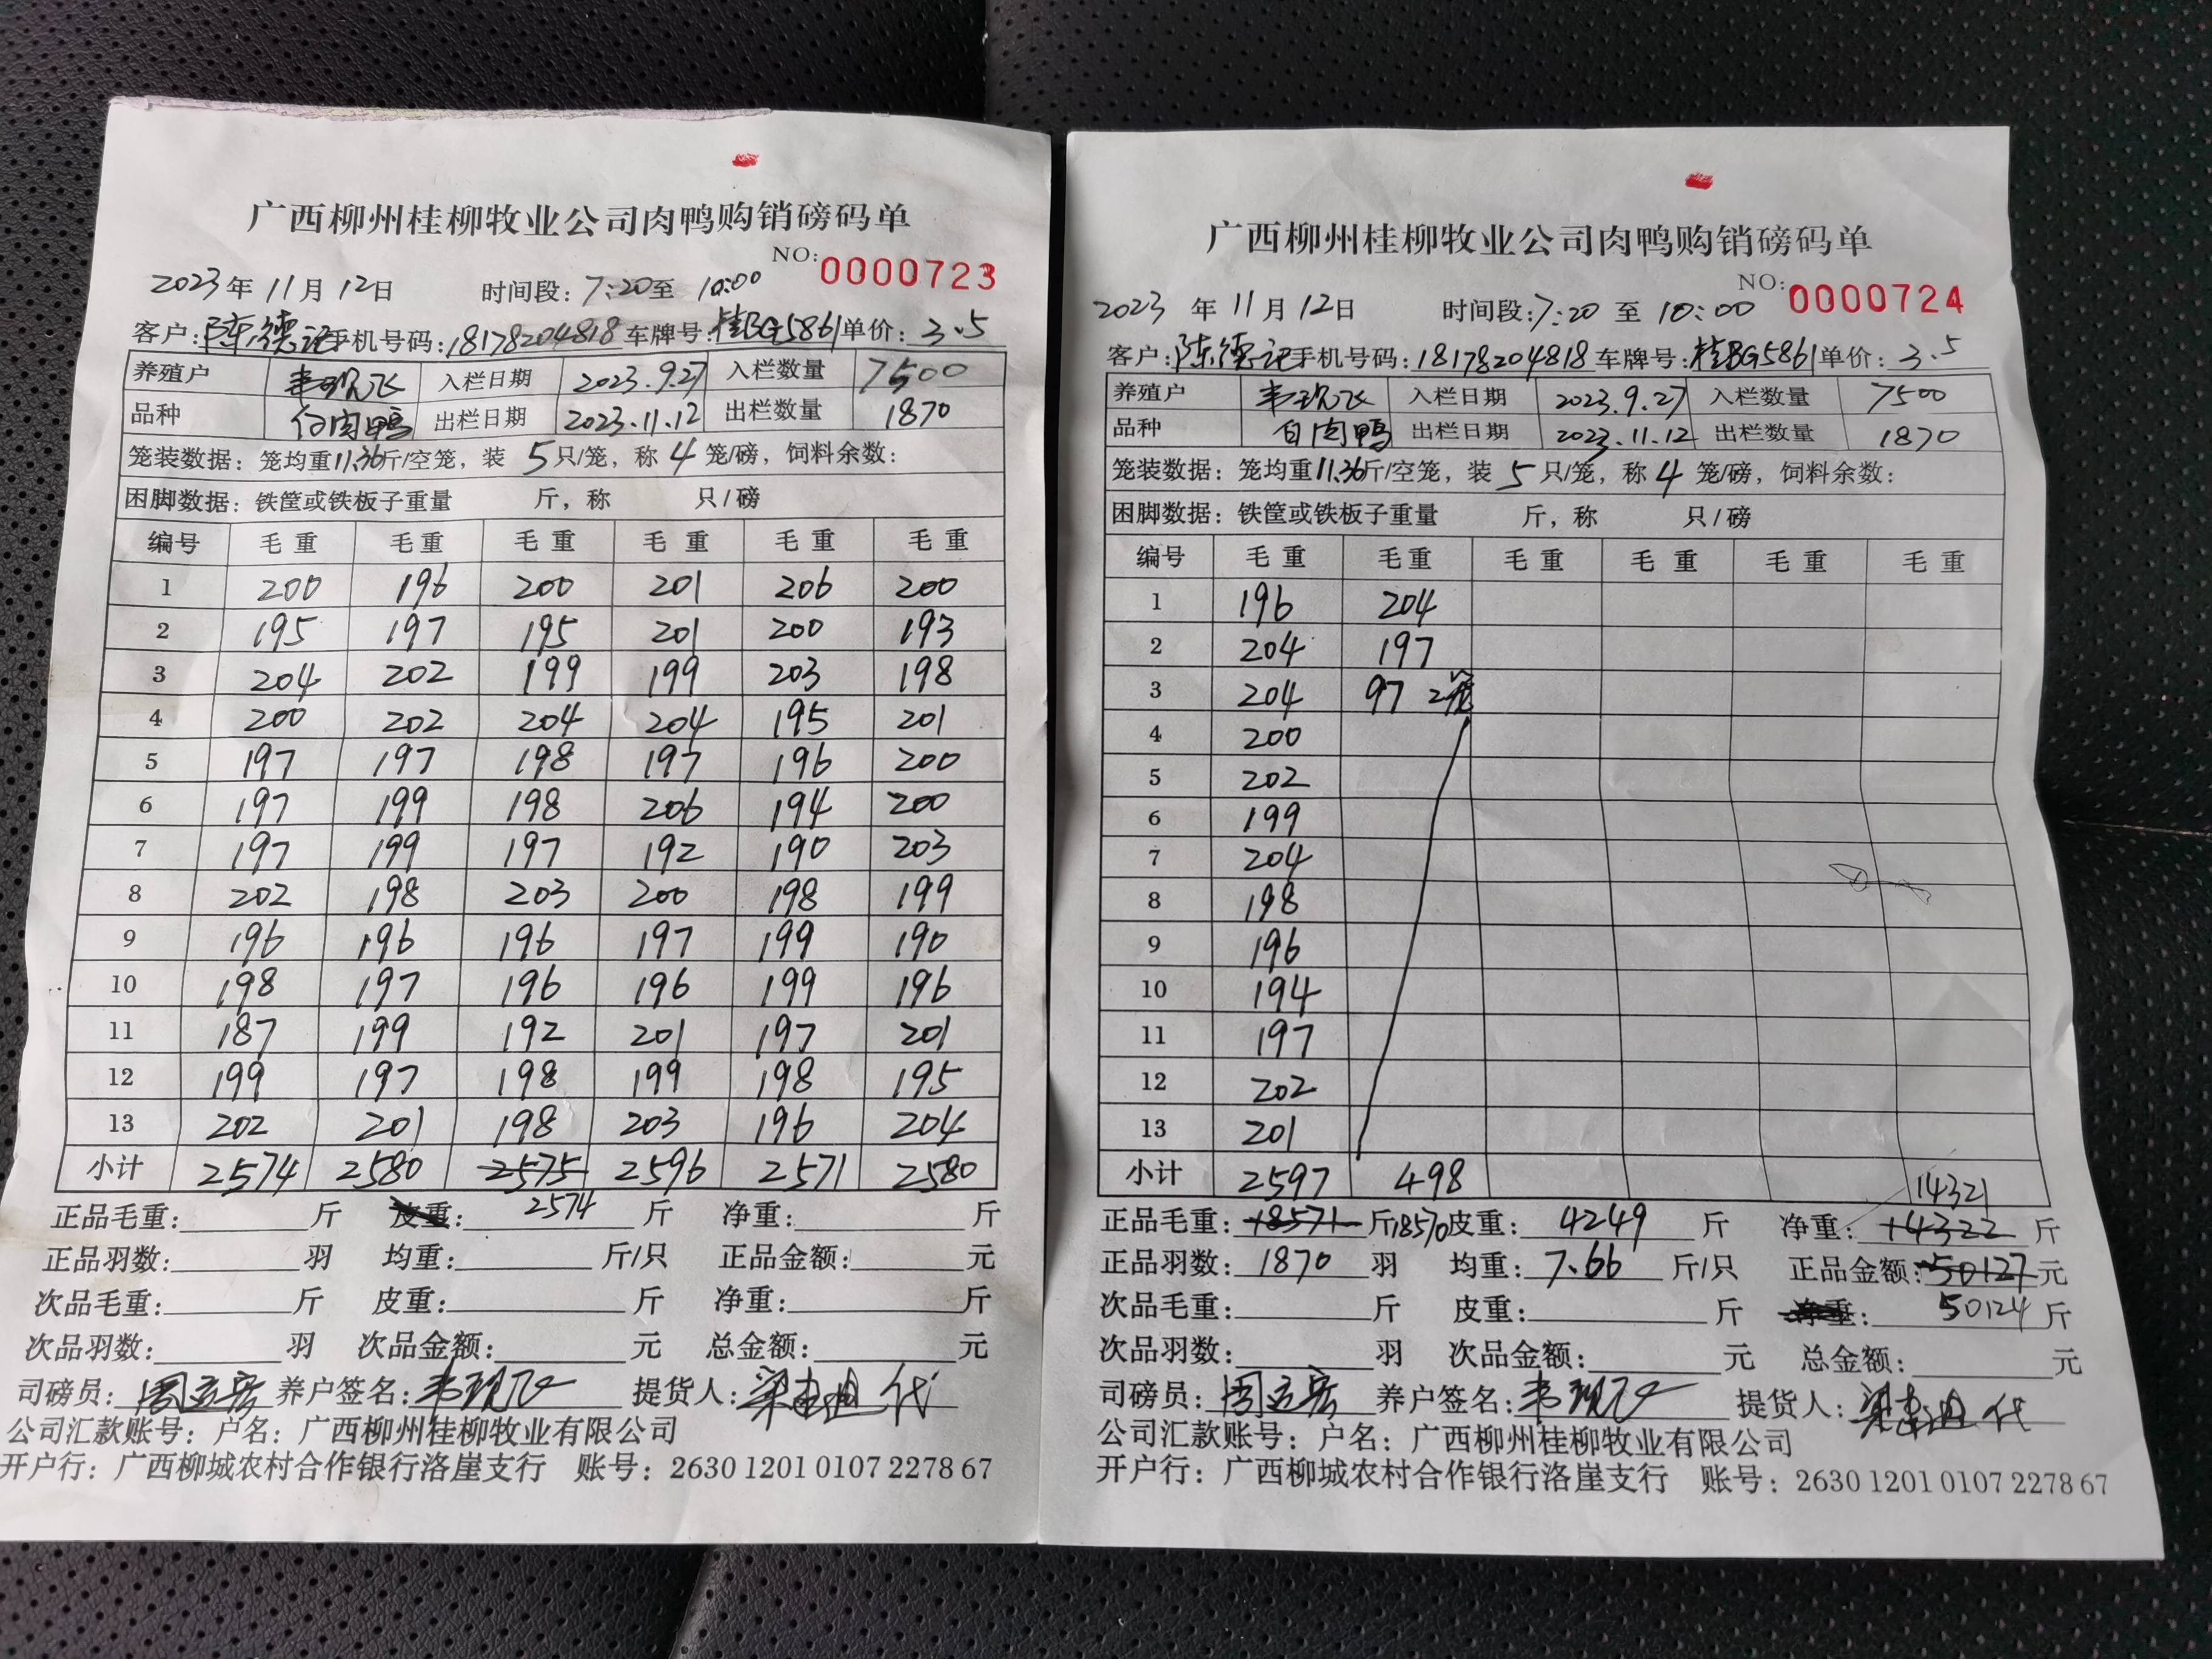 广西柳州桂柳牧业公司肉鸭购销磅码单
NO: 0000723
2023年11月12日 时间段:7:20至10:00
客户:陈德记手机号码:18178204818车牌号:桂BG5861单价:3.5
养殖户 韦现飞 入栏日期 2023.9.27 入栏数量 7500
品种 白肉鸭 出栏日期 2023.11.12 出栏数量 1870
笼装数据:笼均重11.36斤/空笼,装5只/笼,称4笼/磅,饲料余数:
困脚数据:铁筐或铁板子重量 斤,称 只/磅
编号 毛重 毛重 毛重 毛重 毛重 毛重
1 200 196 200 201 206 200
2 195 197 195 201 200 193
3 204 202 199 199 203 198
4 200 202 204 204 195 201
5 197 197 198 197 196 200
6 197 199 198 206 194 200
7 197 199 197 192 190 203
8 202 198 203 200 198 199
9 196 196 196 197 199 190
10 198 197 196 196 199 196
11 187 199 192 201 197 201
12 199 197 198 199 198 195
13 202 201 198 203 196 204
小计 2574 2580 2575 2596 2571 2580
正品毛重: 斤 皮重: 2574 斤 净重: 斤
正品羽数: 羽 均重: 斤/只 正品金额: 元
次品毛重: 斤 皮重: 斤 净重: 斤
次品羽数: 羽 次品金额: 元 总金额: 元
司磅员:周立宏 养户签名:韦现飞 提货人: 代
公司汇款账号:户名:广西柳州桂柳牧业有限公司
开户行:广西柳城农村合作银行洛崖支行 账号:2630 1201 0107 2278 67
广西柳州桂柳牧业公司肉鸭购销磅码单
NO: 0000724
2023年11月12日 时间段:7:20至10:00
客户:陈德记手机号码:18178204818车牌号:桂BG5861单价:3.5
养殖户 韦现飞 入栏日期 2023.9.27 入栏数量 7500
品种 白肉鸭 出栏日期 2023.11.12 出栏数量 1870
笼装数据:笼均重11.36斤/空笼,装5只/笼,称4笼/磅,饲料余数:
困脚数据:铁筐或铁板子重量 斤,称 只/磅
编号 毛重 毛重 毛重 毛重 毛重 毛重
1 196 204
2 204 197
3 204 97 2笼
4 200
5 202
6 199
7 204
8 198
9 196
10 194
11 197
12 202
13 201
小计 2597 498 14321
正品毛重:18571斤18570皮重:4249斤 净重:14322斤
正品羽数:1870羽 均重:7.66斤/只 正品金额:50127元
次品毛重: 斤 皮重: 斤 净重: 50124斤
次品羽数: 羽 次品金额: 元 总金额: 元
司磅员:周立宏 养户签名:韦现飞 提货人: 代
公司汇款账号:户名:广西柳州桂柳牧业有限公司
开户行:广西柳城农村合作银行洛崖支行 账号:2630 1201 0107 2278 67